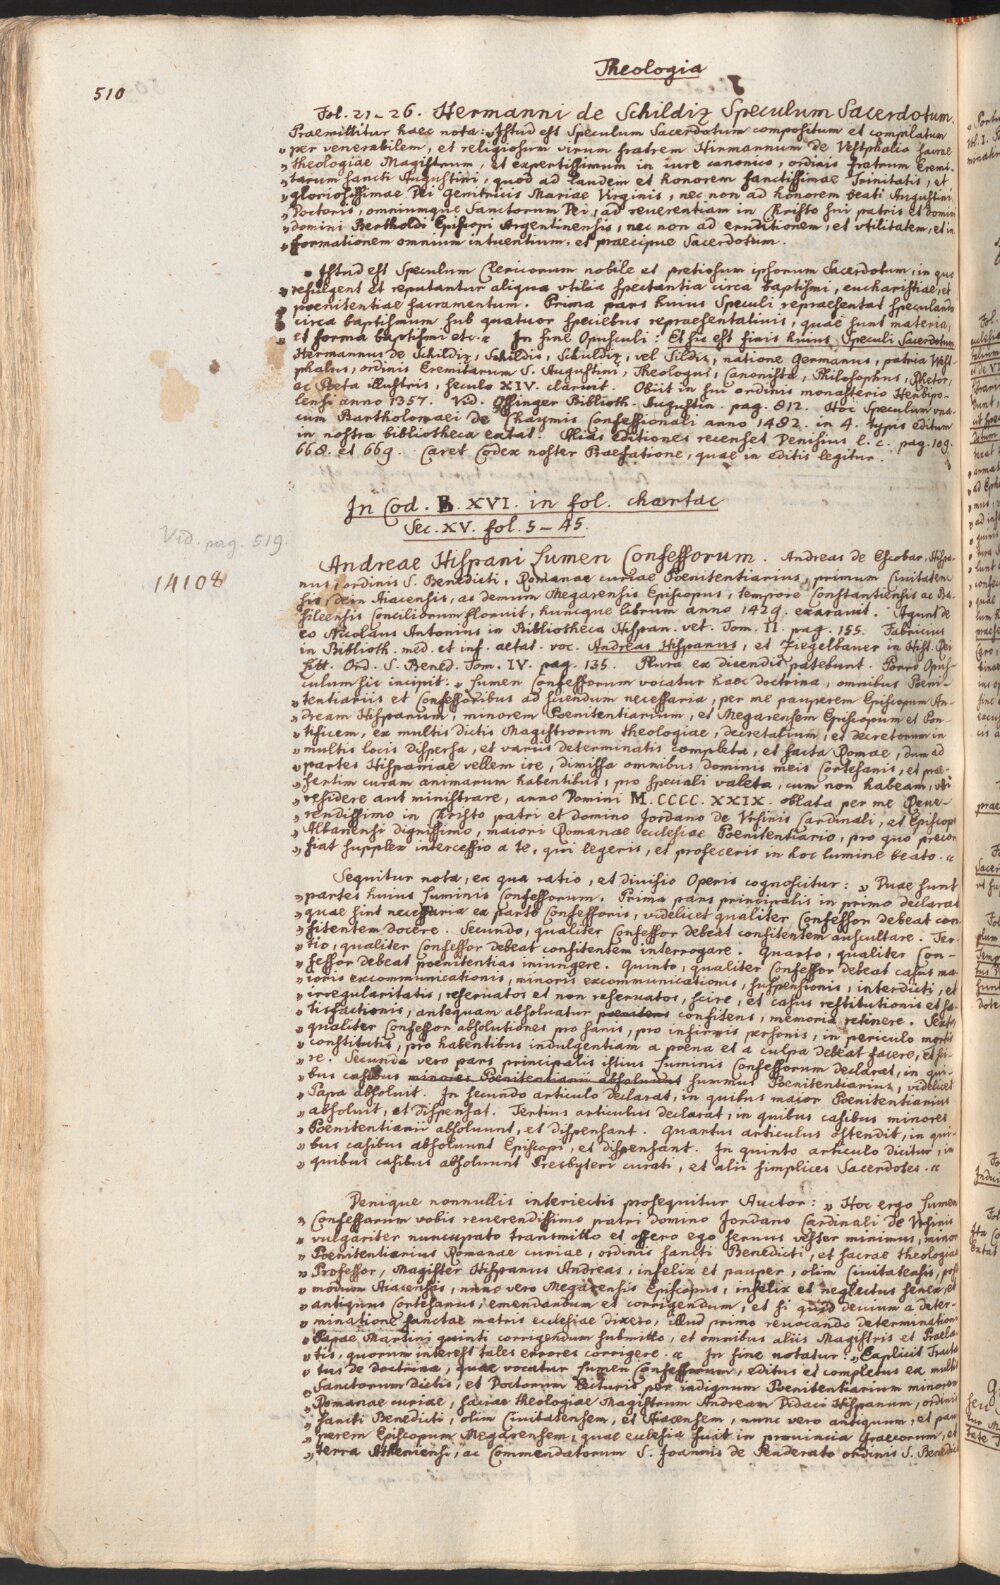 Theologia
510
Fol. 21–26. Hermanni de Schildiz Speculum Sacerdotum.
Praemittitur haec nota: „Istud est Speculum Sacerdotum compositum et compilatum
„per venerabilem, et religiosum virum fratrem Hirmannum de Vestphalia sacrae
„theologiae Magistrum, et expertissimum in iure canonico, ordinis fratrum Eremi-
„tarum sancti Augustini, quod ad laudem et honorem sanctissimae Trinitatis, et
„gloriosissimae Dei Genitricis Mariae Virginis, nec non ad honorem beati Augustini
„Doctoris, omniumque Sanctorum Dei, ad reverentiam in Christo sui patris et domini
„domini Bertholdi Episcopi Argentinensis, nec non ad eruditionem, et utilitatem, et in
„formationem omnium intuentium, et praecipue Sacerdotum.
„Istud est Speculum Clericorum nobile et pretiosum ipsorum Sacerdotum, in quo
„resulgent et reputantur aliqua utilia spectantia circa baptismi, eucharistiae, et
„poenitentiae sacramentum. Prima pars huius Speculi repraesentat speculando
„circa baptismum sub quatuor speciebus repraesentativis, quae sunt materia,
„et forma baptismi etc.“ In fine Opusculi: Et sic est finis huius Speculi Sacerdotum
Hermannus de Schildiz, Schildis, Schuldiz, vel Sildiz, natione Germanus, patria West-
phalus, ordinis Eremitarum S. Augustini, Theologus, Canonista, Philosophus, Rhetor,
ac Poeta illustris, seculo XIV. claruit. Obiit in sui ordinis monasterio Herbipo-
lensi anno 1357. Vid. Ossinger Biblioth. Augustin. pag. 812. Hoc Speculum una
cum Bartholomaei de Chaymis Confessionali anno 1482. in 4. typis editum
in nostra bibliotheca extat. Alias editiones recenset Denisius l. c. pag. 109.
668. et 669. Caret Codex noster Praefatione, quae in editis legitur.
In Cod. B. XVI. in fol. chartac
Sec. XV. fol. 5–45.
Vid. pag. 519.
14108
Andreae Hispani Lumen Confessorum. Andreas de Escobar, Hispa-
nus, ordinis S. Benedicti, Romanae curiae Poenitentiarius, primum Civitaten-
sis, dein Aiacensis, ac demum Megarensis Episcopus, tempore Constantiensis ac Ba-
sileensis Conciliorum floruit, huncque librum anno 1429. exaravit. Agunt de
eo Nicolaus Antonius in Bibliotheca Hispan. vet. Tom. II. pag. 155. Fabricius
in Biblioth. med. et inf. aetat. voc. Andreas Hispanus, et Ziegelbauer in Hist. Rei
Litt. Ord. S. Bened. Tom. IV. pag. 135. Plura ex dicendis patebunt. Porro Opus-
culum sic incipit: „Lumen Confessorum vocatur haec doctrina, omnibus Poeni-
„tentiariis et Confessoribus ad sciendum necessaria, per me pauperem Episcopum An-
„dream Hispanum, minorem Poenitentiarium, et Megarensem Episcopum et Pon-
„tificem, ex multis dictis Magistrorum theologiae, decretalium, et decretorum in
„multis locis dispersa, et variis determinatis completa, et facta Romae, dum ad
„partes Hispaniae vellem ire, dimissa omnibus dominis meis Cortesanis, et prae-
„sertim curam animarum habentibus, pro speciali valeta, cum non habeam, ubi
„residere aut ministrare, anno Domini M. CCCC. XXIX. oblata per me Reve-
„rendissimo in Christo patri et domino Jordano de Ursinis Cardinali, et Episcopo
„Albanensi dignissimo, maiori Romanae ecclesiae Poenitentiario, pro quo precor
„fiat supplex intercessio a te, qui legeris, et profeceris in hoc lumine beato.“
Sequitur nota, ex qua ratio, et divisio Operis cognoscitur: „Duae sunt
„partes huius Luminis Confessorum. Prima pars principalis in primo declarat
„quae sint necessaria ex parte Confessoris, videlicet qualiter Confessor debeat con-
„fitentem docere. Secundo, qualiter Confessor debeat confitentem auscultare. Ter-
„tio, qualiter Confessor debeat confitentem interrogare. Quarto, qualiter Con-
„fessor debeat poenitentias iniungere. Quinto, qualiter Confessor debeat casus ma-
„ioris excommunicationis, minoris excommunicationis, suspensionis, interdicti, et
„irregularitatis, reservatos et non reservatos, scire, et casus restitutionis et sa-
„tisfactionis, antequam absolvatur poenitens confitens, memoria retinere. Sexto,
„qualiter Confessor absolutiones pro sanis, pro infirmis personis, in periculo mortis
„constitutis, pro habentibus indulgentiam a poena et a culpa debeat facere, et sci-
„re. Secunda vero pars principalis istius Luminis Confessorum declarat, in qui-
„bus casibus minores Poenitentiarii absolvunt summus Poenitentiarius, videlicet
„Papa absolvit. In secundo articulo declarat, in quibus maior Poenitentiarius
„absolvit, et dispensat. Tertius articulus declarat, in quibus casibus minores
„Poenitentiarii absolvunt, et dispensant. Quartus articulus ostendit, in qui-
„bus casibus absolvunt Episcopi, et dispensant. In quinto articulo dicitur, in
„quibus casibus absolvunt Presbyteri curati, et alii simplices Sacerdotes.“
Denique nonnullis interiectis prosequitur Auctor: „Hoc ergo Lumen
„Confessorum vobis reverendissimo patri domino Jordano Cardinali de Ursinis
„vulgariter nuncupato transmitto et offero ego servus vester minimus, minor
„Poenitentiarius Romanae curiae, ordinis sancti Benedicti, et sacrae theologiae
„Professor, Magister Hispanus Andreas, infelix et pauper, olim Civitatensis, post
„modum Aiacensis, nunc vero Megarensis Episcopus, infelix et neglectus senex, et
„antiquus Cortesanus, emendandum et corrigendum, et si quid devium a deter-
„minatione sanctae matris ecclesiae dixero, illud primo revocando determinationi
„Papae Martini quinti corrigendum submitto, et omnibus aliis Magistris et Praela-
„tis, quorum interest tales errores corrigere.“ In fine notatur: „Explicit Tracta-
„tus de doctrina, quae vocatur Lumen Confessorum, editus et completus ex multis
„Sanctorum dictis, et Doctorum lecturis per indignum Poenitentiarium minorem
„Romanae curiae, sacrae theologiae Magistrum Andream Didaci Hispanum, ordinis
„sancti Benedicti, olim Civitatensem, et Aiacensem, nunc vero antiquum, et pau-
„perem Episcopum Megarensem, quae ecclesia fuit in provincia Graecorum, et
„terra Atheniensi, ac Commendatorum S. Joannis de Penderato ordinis S. Benedicti